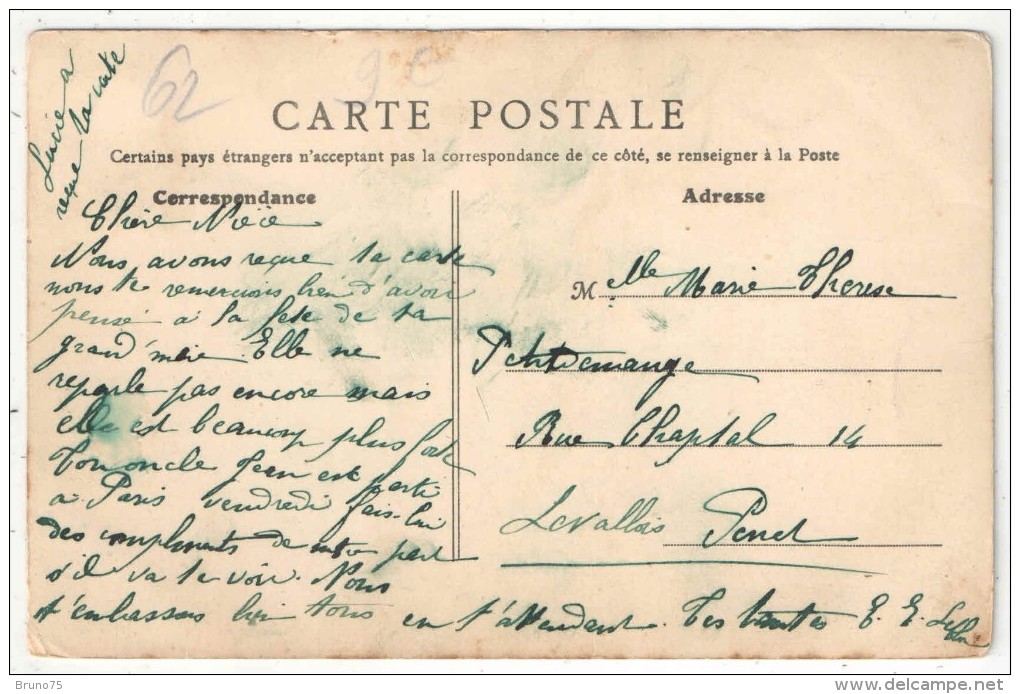 Lucie a
reçue ta carte
62
CARTE POSTALE
Certains pays étrangers n'acceptant pas la correspondance de ce côté, se renseigner à la Poste
Correspondance
Chère Nièce
Nous avons reçue ta carte
nous te remercions bien d'avoir
pensé à la fete de ta
grand'mère. Elle ne
reparle pas encore mais
elle est beaucoup plus forte
Ton oncle Jean est parti
à Paris vendredi fais-lui
des compliments de notre part
s'il va te voir. Nous
t'embassons bien tous en t'attendant. Tes tantes E. E.
Adresse
Melle Marie Therese
Petitdemange
Rue Chaptal 14
Levallois Perret
© Bruno75
delcampe.net